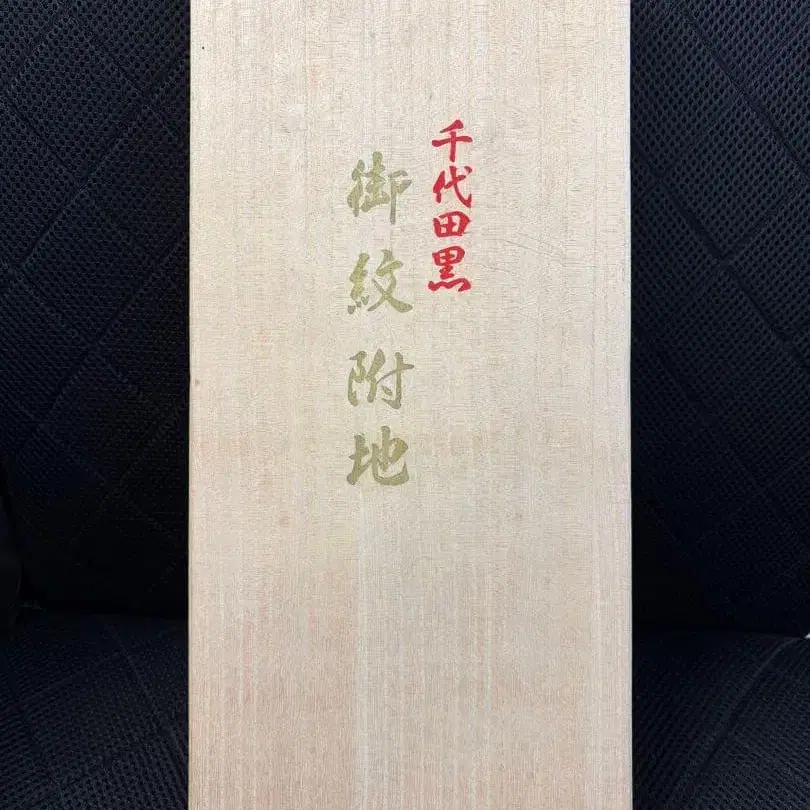 千代田黒
御紋附地